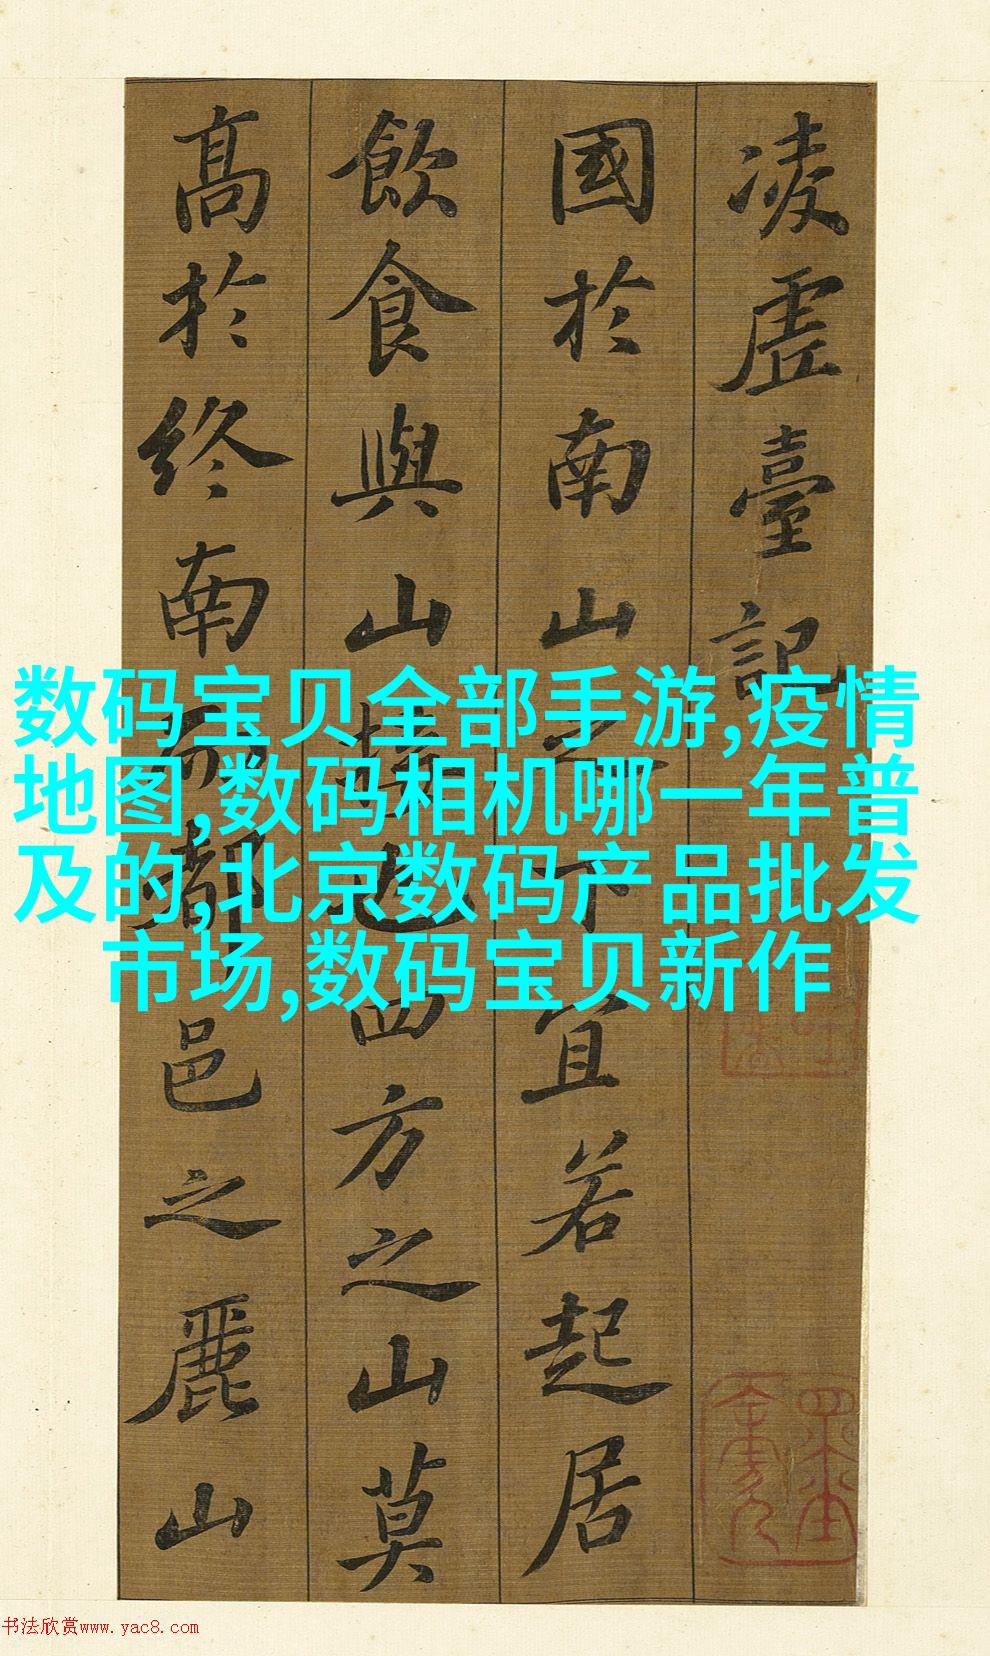 凌虛臺記
國於南山之下宜若起居
飲食與山接也四方之山莫
高於終南而都邑之麗山
数码宝贝全部手游,疫情
地图,数码相机哪一年普
及的,北京数码产品批发
市场,数码宝贝新作
书法欣赏www.yac8.com